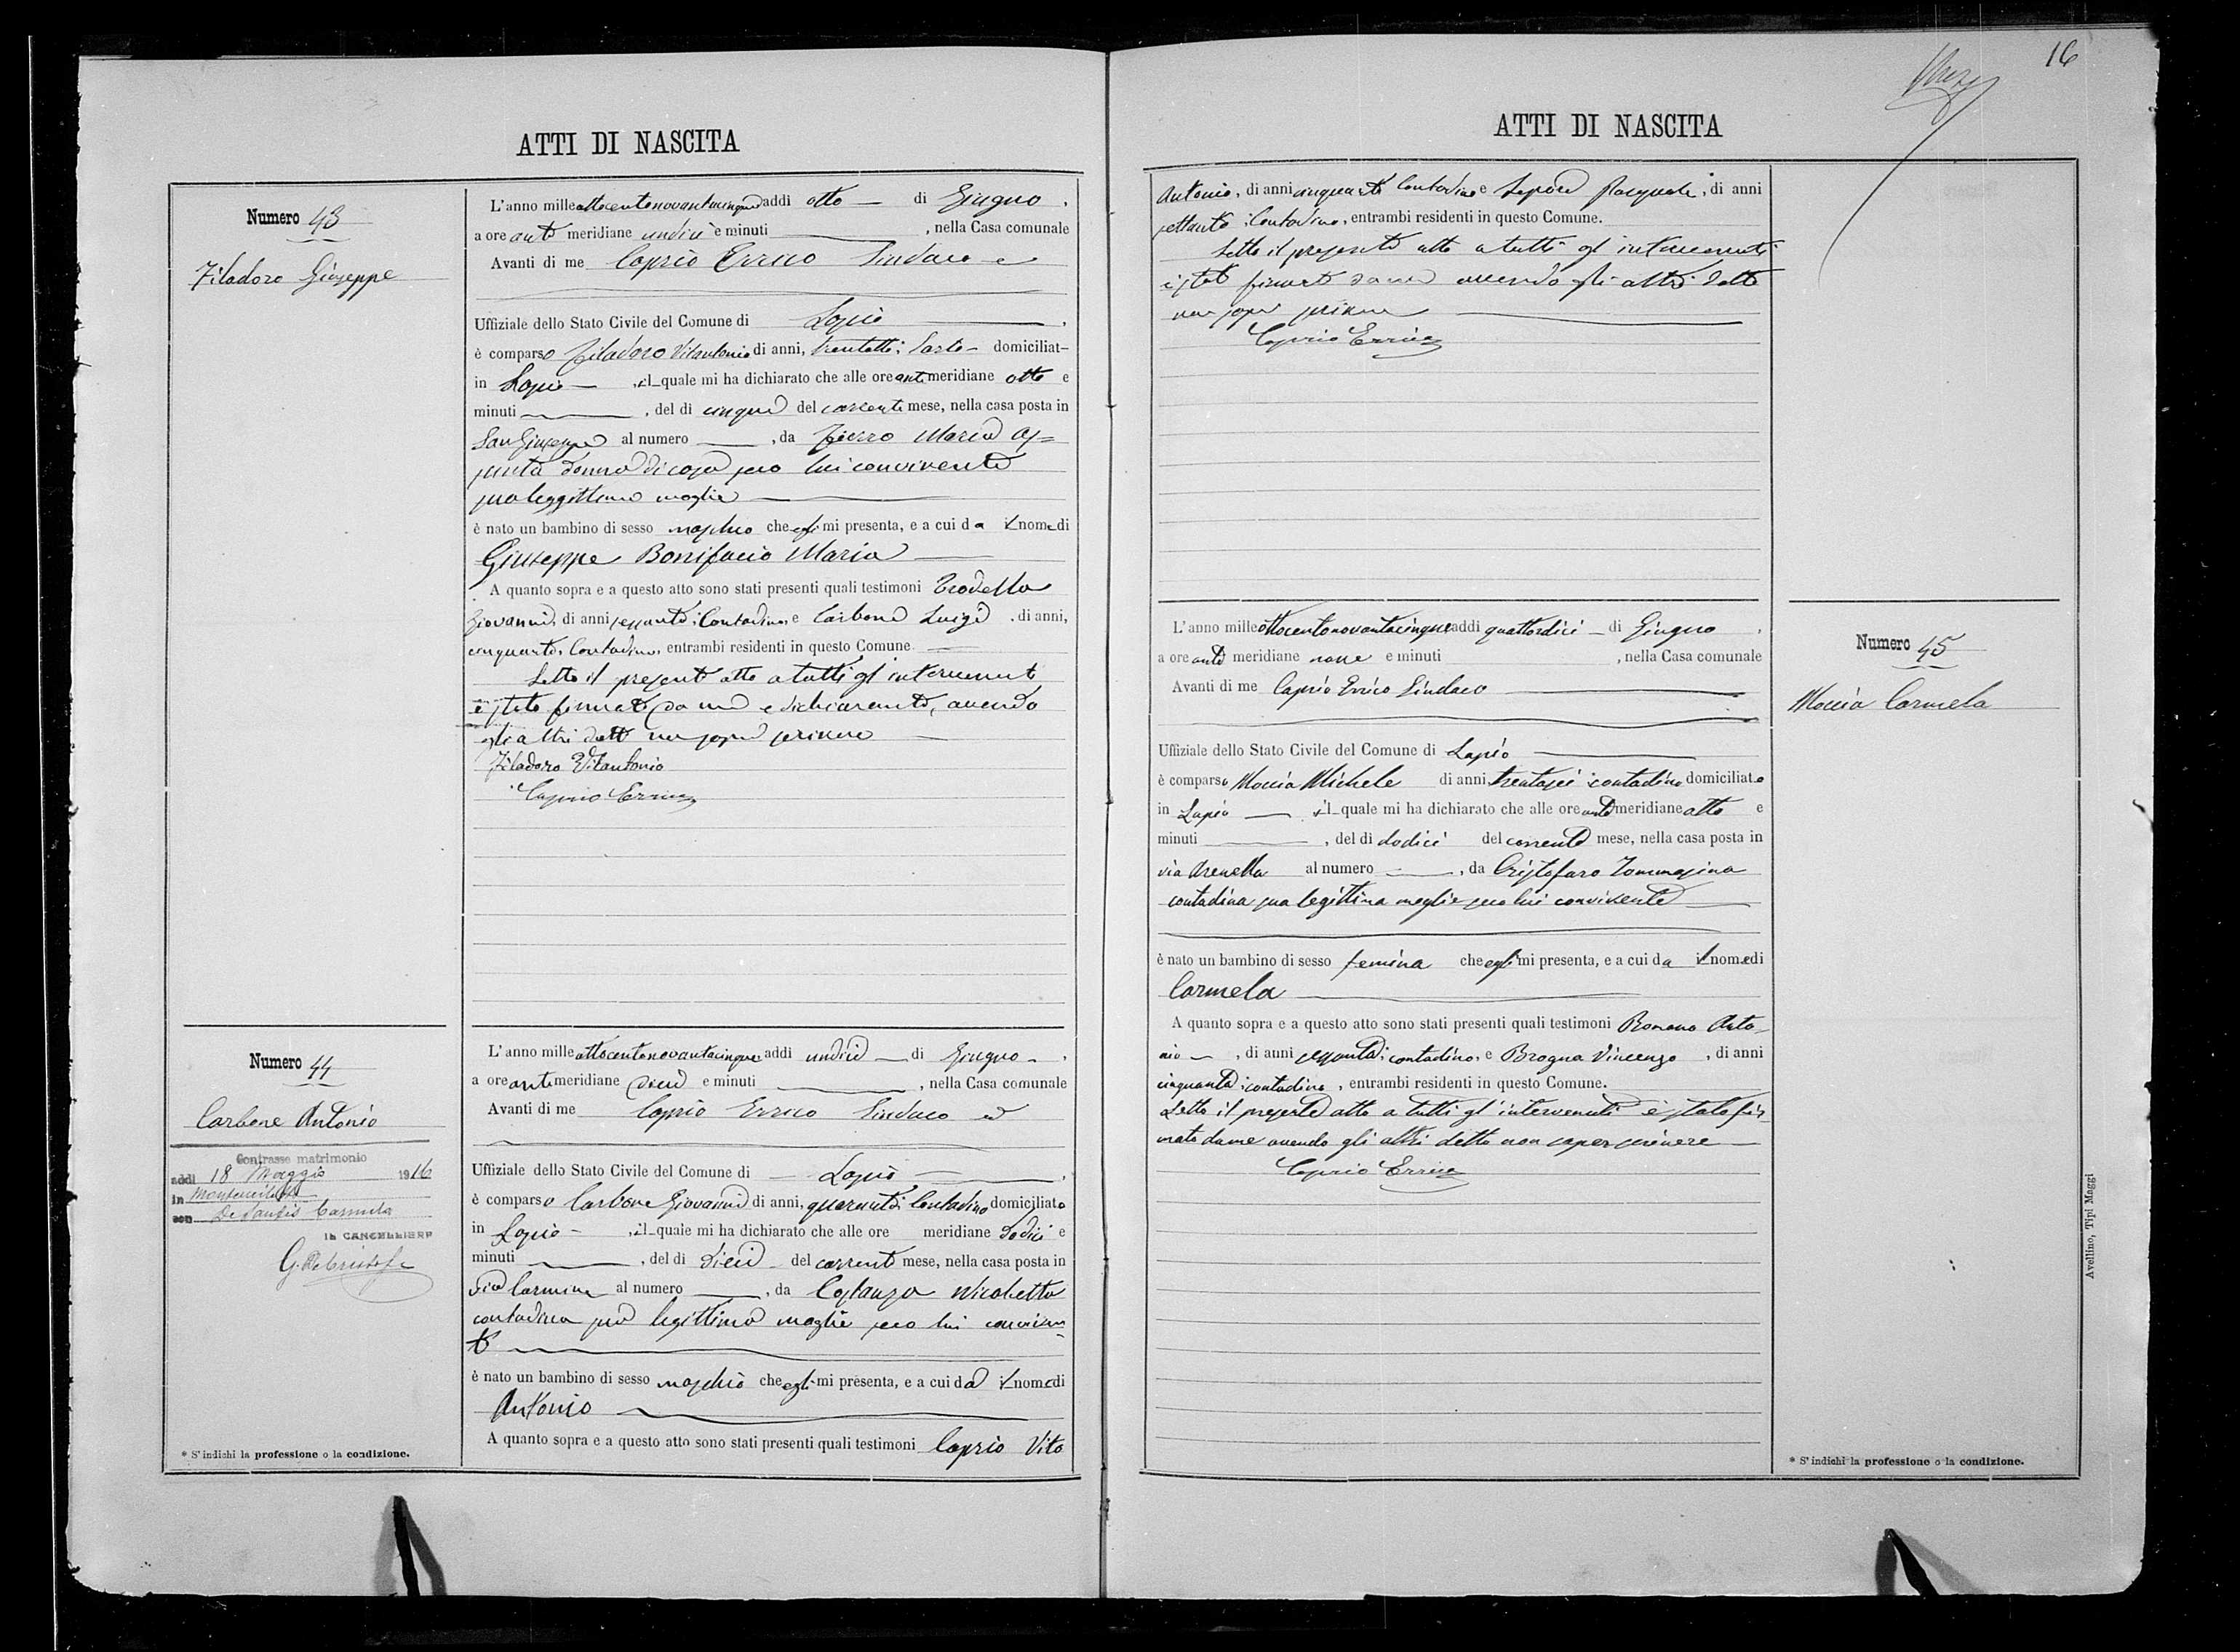 ATTI DI NASCITA
Numero 43
Filadoro Giuseppe
L'anno milleottocentonovantacinque addì otto di Giugno,
a ore anti meridiane undici e minuti , nella Casa comunale
Avanti di me Caprio Errico Sindaco e
Uffiziale dello Stato Civile del Comune di Lapio ,
è comparso Filadoro Vitantonio di anni, trentotto; Sarto domiciliat
in Lapio , il quale mi ha dichiarato che alle ore anti meridiane otto e
minuti , del dì cinque del corrente mese, nella casa posta in
San Giuseppe al numero , da Fierro Maria As=
sunta donna di casa seco lui convivente
sua leggittima moglie
è nato un bambino di sesso maschio che egli mi presenta, e a cui da il nome di
Giuseppe Bonifacio Maria
A quanto sopra e a questo atto sono stati presenti quali testimoni Trodella
Giovanni, di anni sessanta; Contadino, e Carbone Luigi , di anni,
cinquanta, Contadino, entrambi residenti in questo Comune
Letto il presente atto a tutti gl'intervenuti
è stato firmato da me e dichiarante, avendo
gli altri detto non sapere scrivere
Filadoro Vitantonio
Caprio Errico
Numero 44
Carbone Antonio
Contrasse matrimonio
addì 18 Maggio 1916
in
con De Santis Carmela
IL CANCELLIERE
L'anno milleottocentonovantacinque addì undici di Giugno ,
a ore anti meridiane dieci e minuti , nella Casa comunale
Avanti di me Caprio Errico Sindaco ed
Uffiziale dello Stato Civile del Comune di Lapio ,
è comparso Carbone Giovanni di anni, quaranta; Contadino domiciliato
in Lapio , il quale mi ha dichiarato che alle ore meridiane dodici e
minuti , del dì dieci del corrente mese, nella casa posta in
via Carmine al numero , da Costanza Nicoletta
contadina sua legittima moglie seco lui conviven
te
è nato un bambino di sesso maschio che egli mi presenta, e a cui da il nome di
Antonio
A quanto sopra e a questo atto sono stati presenti quali testimoni Caprio Vito
* S'indichi la professione o la condizione.
16
ATTI DI NASCITA
Antonio, di anni cinquanta Contadino e Pasquale, di anni
settanta; Contadino, entrambi residenti in questo Comune.
Letto il presente atto a tutti gl'intervenuti
è stato firmato da me avendo gli altri detto
non saper scrivere
Caprio Errico
Numero 45
Moccia Carmela
L'anno milleottocentonovantacinque addì quattordici di Giugno ,
a ore anti meridiane nove e minuti , nella Casa comunale
Avanti di me Caprio Errico Sindaco
Uffiziale dello Stato Civile del Comune di Lapio
è comparso Moccia Michele di anni, trentasei contadino domiciliato
in Lapio , il quale mi ha dichiarato che alle ore anti meridiane otto e
minuti , del dì dodici del corrente mese, nella casa posta in
via Arenella al numero , da Cristofaro Tommasina
contadina sua legittima moglie seco lui convivente
è nato un bambino di sesso femina che egli mi presenta, e a cui da il nome di
Carmela
A quanto sopra e a questo atto sono stati presenti quali testimoni Romano Anto-
nio , di anni sessanta; contadino, e Brogna Vincenzo , di anni
cinquanta; contadino , entrambi residenti in questo Comune.
Letto il presente atto a tutti gl'intervenuti è stato fir-
mato da me avendo gli altri detto non saper scrivere
Caprio Errico
* S'indichi la professione o la condizione.
Avellino, Tipi Maggi